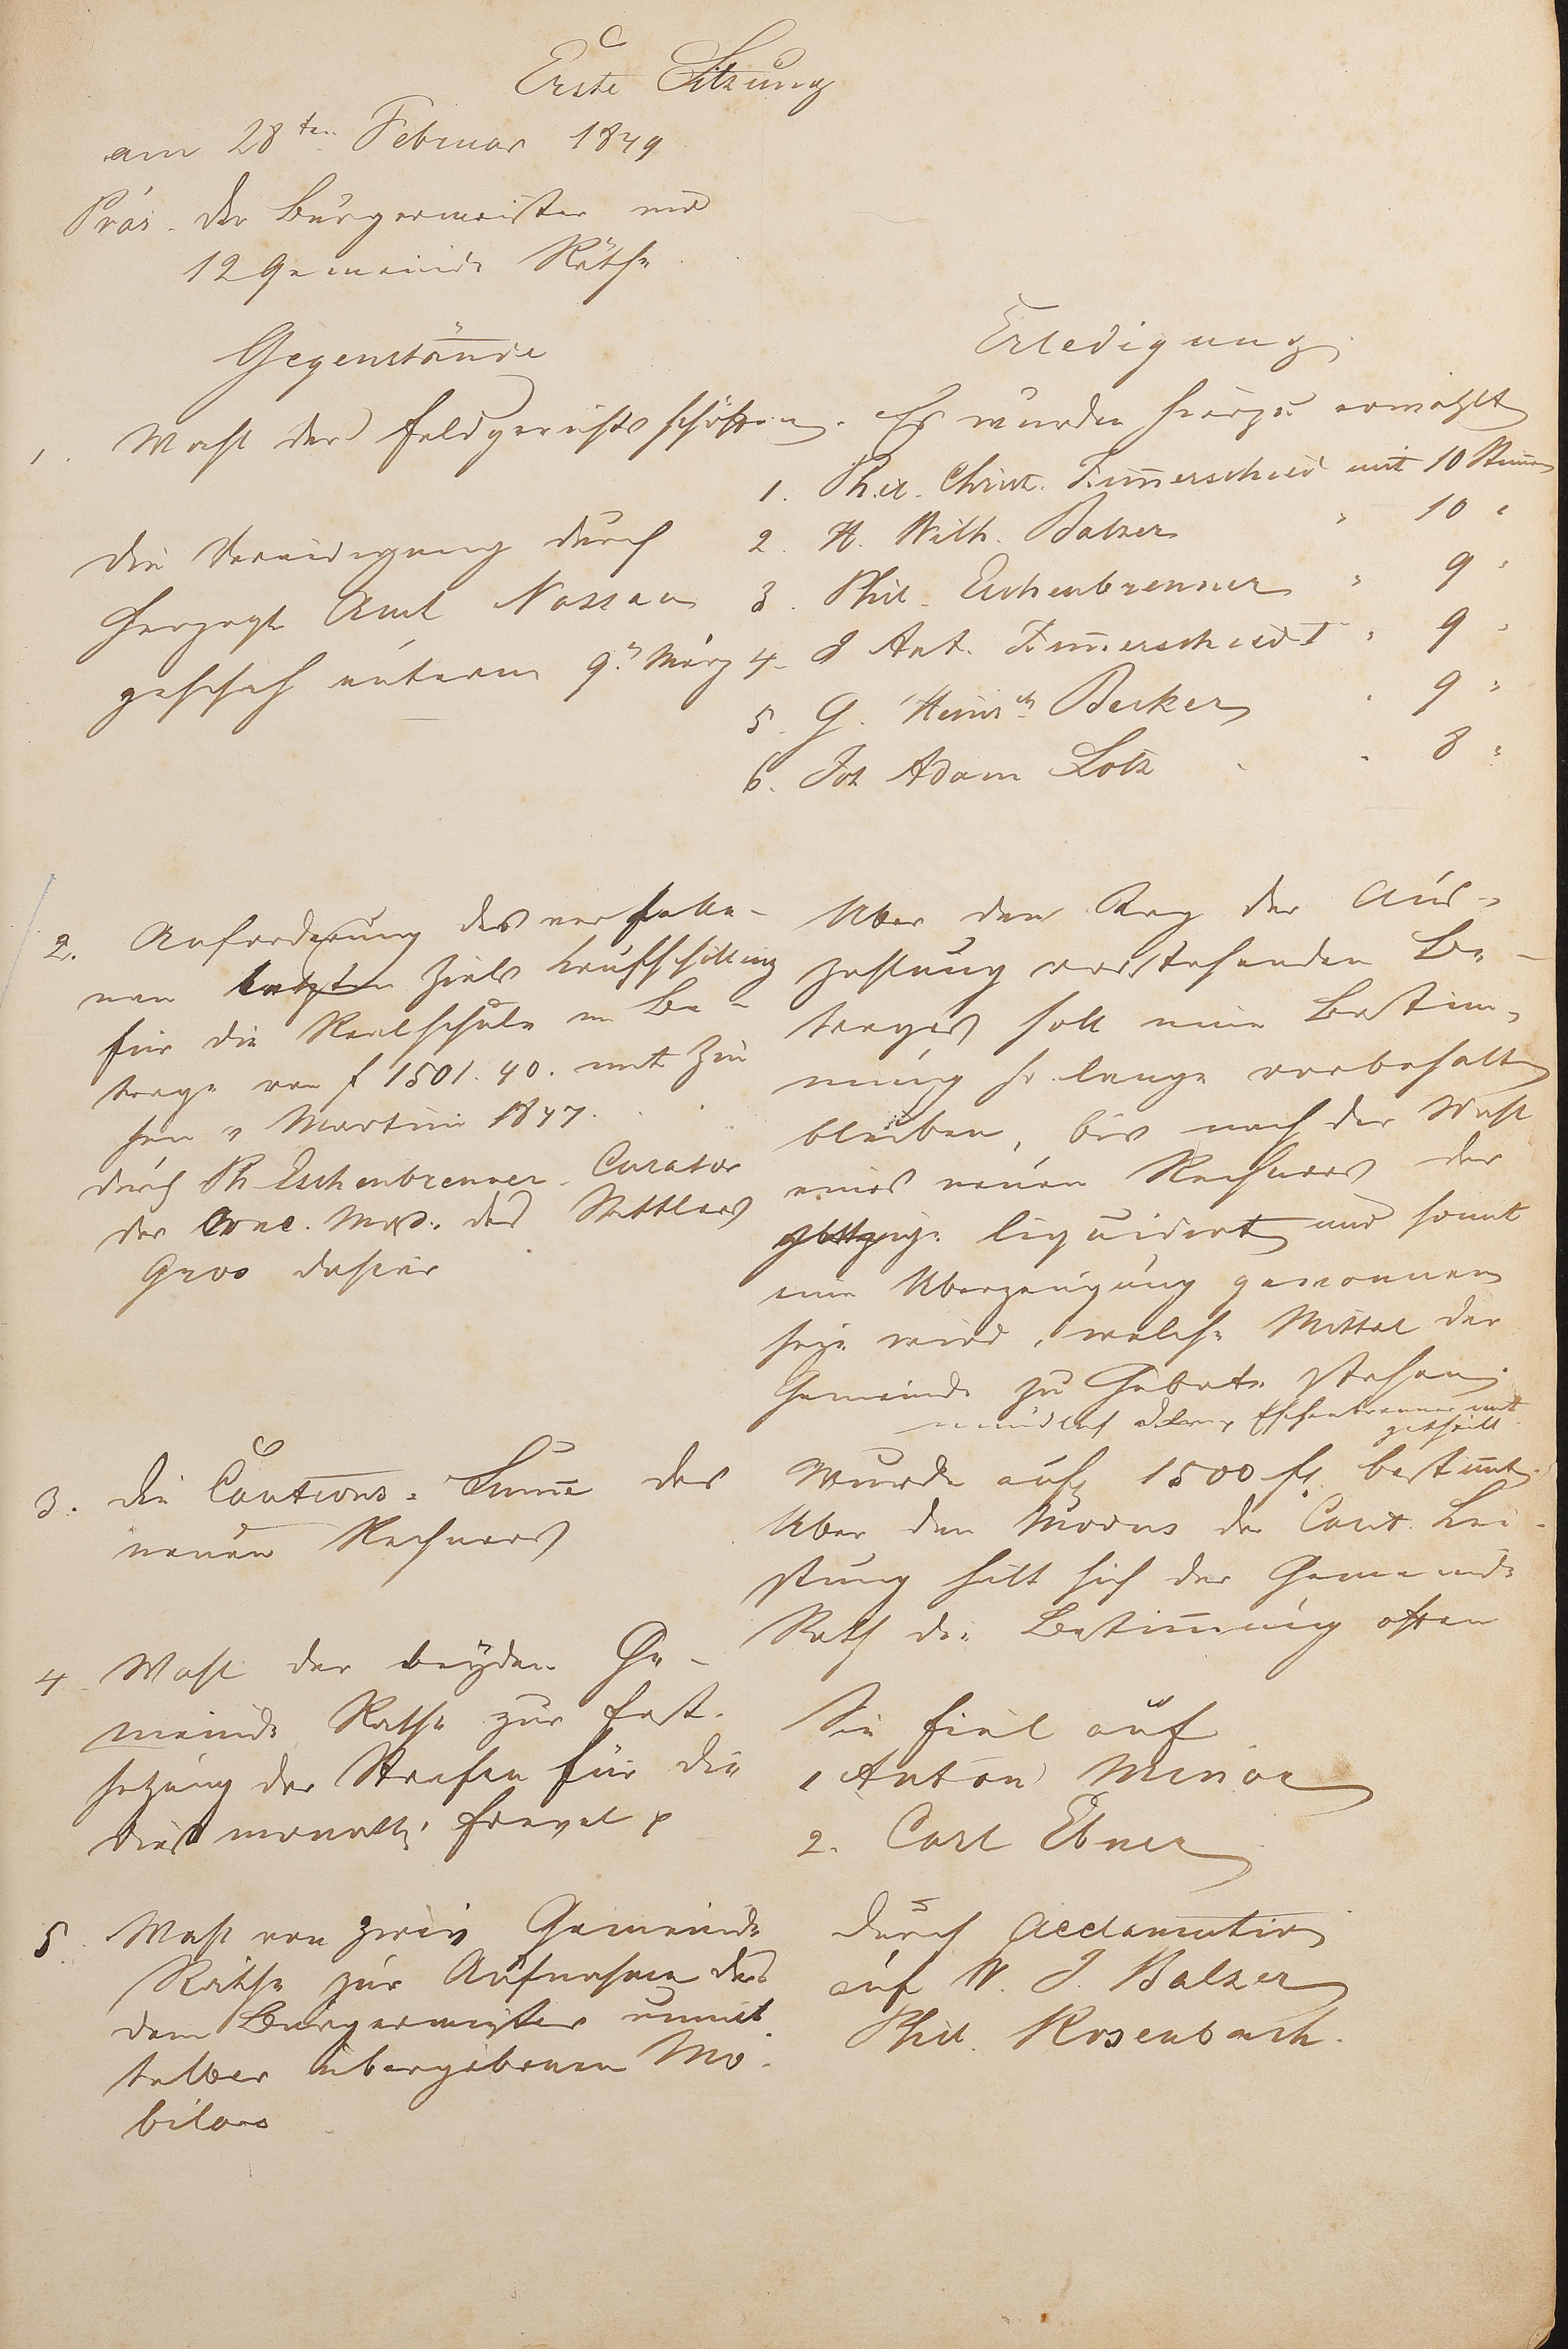 Erste Sitzung
am 28ten Februar 1849
Präs. der Bürgermeister und
12 Gemeinde Räthe
Gegenstände
1. Wahl der Feldgerichtsschöffen.
Die Vereidigung durch
Herzogl. Amt Nassau
geschah unterm 9n März
2. Anforderung des verfalle-
nen letzten Ziels Kaufschilling
für die Realschule im Be-
trage von f 1501. 40. mit Zin
sen v Martini 1847.
durch Ph Eschenbrenner Curator
der Conc. Mass. des
Gros dahier
3. Die Cautions-Sum̅e des
neuen Rechners
4. Wahl der beyden Ge-
meinde Räthe zur Fest-
setzung der Strafen für die
dies monatl. Frevel
5. Wahl von zwei Gemeinde
Räthe zur Aufnahme des
dem Bürgermeister unmit
telbar übergebenen Mo-
bilars
Erledigung
Es wurden hierzu erwählt
1. Phil. Christ. Zim̅erschied mit 10 Stim̅en
2. H. Wilh. Balzer " 10 "
3. Phil. Eschenbrenner " 9 "
4. J Ant. Zim̅erschied I " 9 "
5. G. Heinrch Becker " 9 "
6. Joh Adam Lotz " 8 "
Uber den Weg der Aus-
zahlung vorstehenden Be-
trages soll eine Bestim-
mung so lange vorbehalten
bleiben, bis nach der Wahl
eines neuen Rechners der
liquidirt und somit
eine Uberzeugung gewonnen
seyn wird, welche Mittel der
Gemeinde zu Gebote stehen.
mündlich Eschenbrenner mit
getheilt
Wurde auf 1500 fl. bestim̅t.
Uber den Modus der Caut. Lei-
stung hält sich der Gemeinde
Rath die Bestim̅ung offen
Sie fiel auf
1 Anton Minor
2. Carl Ebner
Durch Acclamation
auf W. J. Balzer
Phil. Rosenbach.